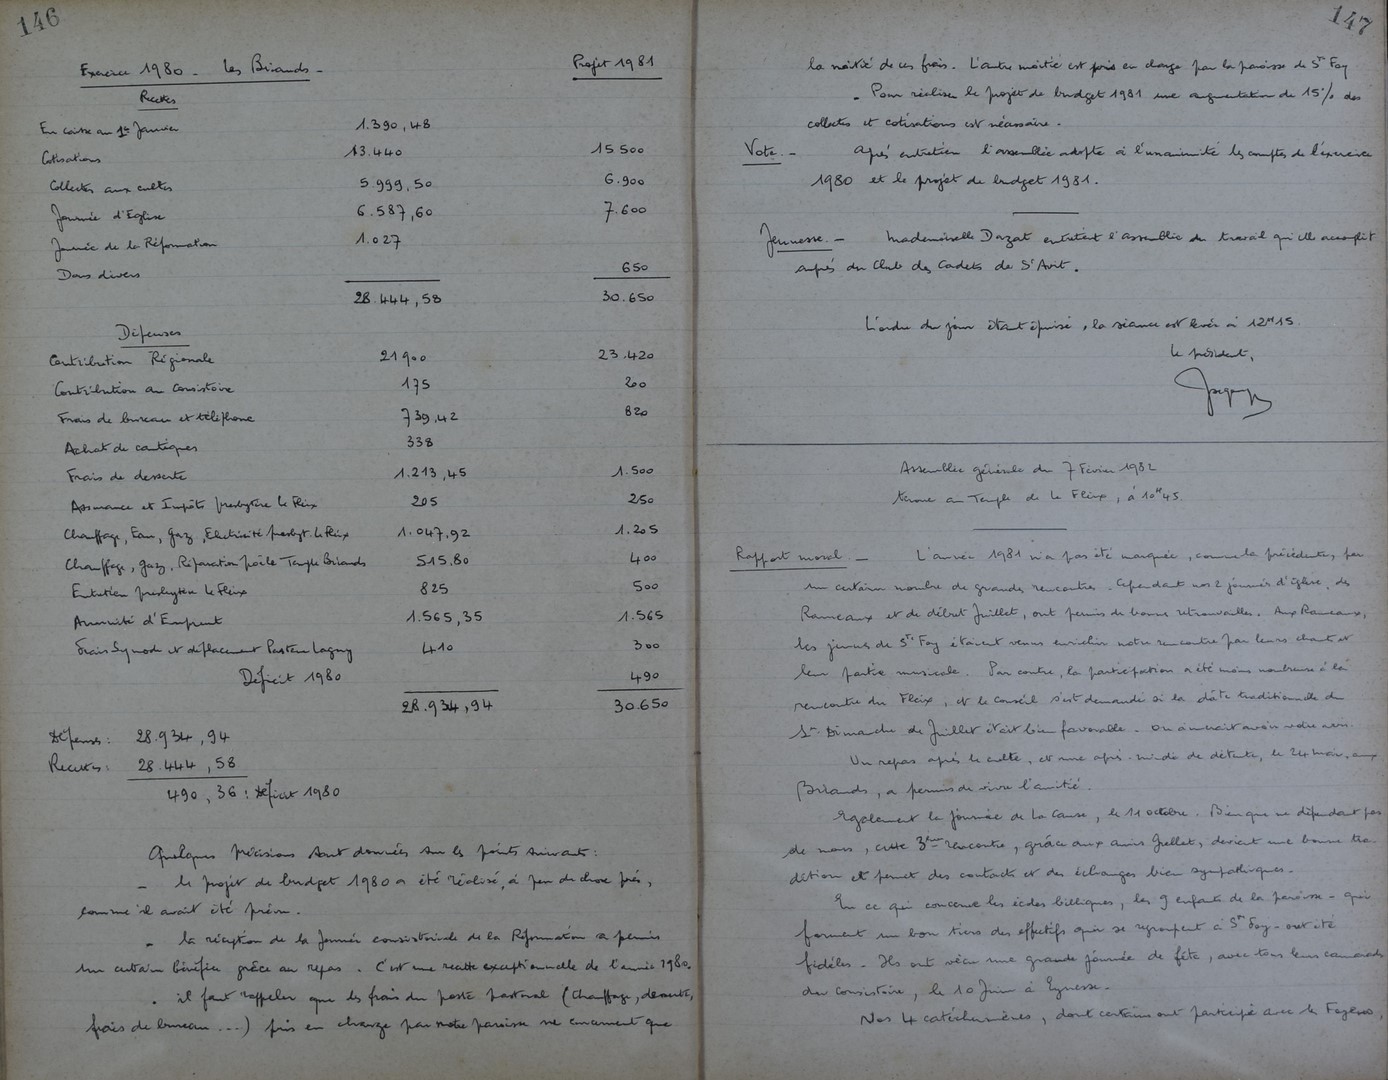 146
Exercice 1980 - Les Briands - Projet 1981
Recettes
En caisse au 1er Janvier 1.390,48
Cotisations 13.440 15 500
Collectes aux cultes 5.999,50 6.900
Journée d'Eglise 6.587,60 7.600
Journée de la Réformation 1.027
Dons divers 650
28.444,58 30.650
Dépenses
Contribution Régionale 21900 23.420
Contribution au Consistoire 175 200
Frais de bureau et téléphone 739,42 820
Achat de cantiques 338
Frais de desserte 1.213,45 1.500
Assurance et Impôts presbytère Le Fleix 205 250
Chauffage, Eau, Gaz, Electricité presbyt. Le Fleix 1.047,92 1.205
Chauffage, gaz, Réparation poêle Temple Briands 515.80 400
Entretien presbytère Le Fleix 825 500
Annuité d'Emprunt 1.565,35 1.565
Frais Synode et déplacement Pasteur Lagny 410 300
Déficit 1980 490
28.934,94 30.650
Dépenses : 28.934,94
Recettes : 28.444,58
490,36 : Déficit 1980
Quelques précisions sont données sur les points suivants :
- le projet de budget 1980 a été réalisé, à peu de chose près,
comme il avait été prévu.
- la réception de la Journée consistoriale de la Réformation a permis
un certain bénéfice grâce au repas. C'est une recette exceptionnelle de l'année 1980.
- il faut rappeler que les frais du poste pastoral (Chauffage, desserte,
frais de bureau ...) pris en charge par notre paroisse ne concernent que
147
la moitié de ces frais. L'autre moitié est prise en charge par la paroisse de Ste Foy
- Pour réaliser le projet de budget 1981 une augmentation de 15% des
collectes et cotisations est nécessaire.
Vote - Après entretien l'assemblée adopte à l'unanimité les comptes de l'exercice
1980 et le projet de budget 1981.
Jeunesse - Mademoiselle Dazat entretient l'assemblée du travail qu'elle accomplit
auprès du Club des Cadets de St Avit.
L'ordre du jour étant épuisé, la séance est levée à 12H15.
Le président,
Assemblée générale du 7 Février 1982
tenue au Temple de Le Fleix, à 10H45
Rapport moral - L'année 1981 n'a pas été marquée, comme la précédente, par
un certain nombre de grandes rencontres. Cependant nos 2 journées d'église, des
Rameaux et de début Juillet, ont permis de bonnes retrouvailles. Aux Rameaux,
les jeunes de Ste Foy étaient venus enrichir notre rencontre par leurs chants et
leur partie musicale. Par contre, la participation a été moins nombreuse à la
rencontre du Fleix, et le Conseil s'est demandé si la date traditionnelle du
1er Dimanche de Juillet était bien favorable. On aimerait avoir votre avis.
Un repas après le culte, et une après-midi de détente, le 24 mai, aux
Briands, a permis de vivre l'amitié.
Egalement la journée de La Cause, le 11 octobre. Bien que ne dépendant pas
de nous, cette 3ème rencontre, grâce aux amis Grellet, devient une bonne tra
dition et permet des contacts et des échanges bien sympathiques.
En ce qui concerne les écoles bibliques, les 9 enfants de la paroisse - qui
forment un bon tiers des effectifs qui se regroupent à Ste Foy - ont été
fidèles. Ils ont vécu une grande journée de fête, avec tous leurs camarades
du consistoire, le 10 Juin à Eynesse.
Nos 4 catéchumènes, dont certains ont participé avec les Foyens,